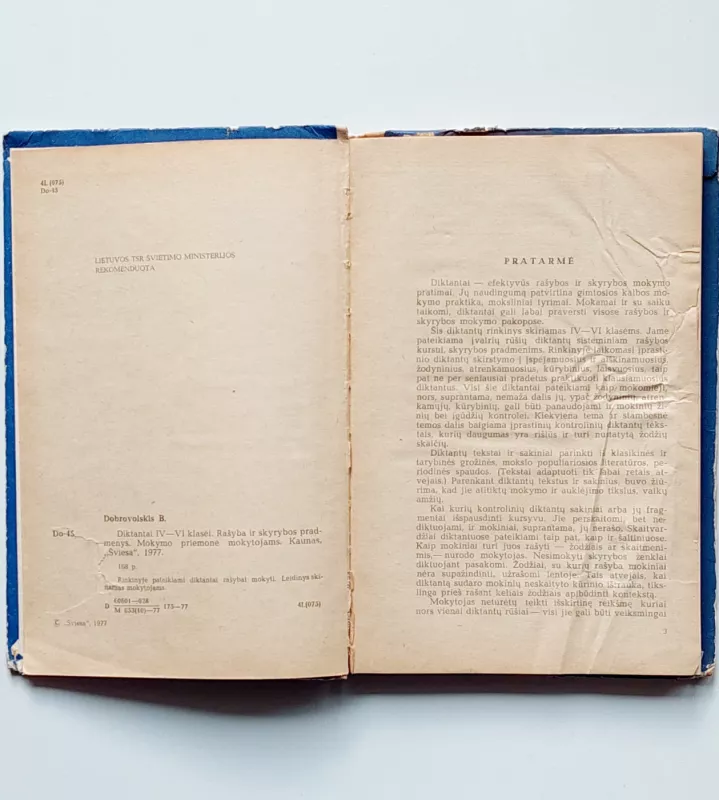 4L (073)
Do-45
LIETUVOS TSR ŠVIETIMO MINISTERIJOS
REKOMENDUOTA
Dobrovolskis B.
Do-45 Diktantai IV—VI klasei. Rašyba ir skyrybos prad-
menys. Mokymo priemonė mokytojams. Kaunas,
„Šviesa“, 1977.
168 p.
Rinkinyje pateikiami diktantai rašybai mokyti. Leidinys ski-
riamas mokytojams.
D 60601—028 175—77 4L(073)
M 853(10)—77
© „Šviesa“, 1977
PRATARMĖ
Diktantai — efektyvūs rašybos ir skyrybos mokymo
pratimai. Jų naudingumą patvirtina gimtosios kalbos mo-
kymo praktika, moksliniai tyrimai. Mokamai ir su saiku
taikomi, diktantai gali labai praversti visose rašybos ir
skyrybos mokymo pakopose.
Šis diktantų rinkinys skiriamas IV—VI klasėms. Jame
pateikiama įvairių rūšių diktantų sisteminiam rašybos
kursui, skyrybos pradmenims. Rinkinyje laikomasi įprasti-
nio diktantų skirstymo į įspėjamuosius ir aiškinamuosius,
žodyninius, atrenkamuosius, kūrybinius, laisvuosius, taip
pat ne per seniausiai pradėtus praktikuoti klausiamuosius
diktantus. Visi šie diktantai pateikiami kaip mokomieji,
nors, suprantama, nemaža dalis jų, ypač žodyninių, atren-
kamųjų, kūrybinių, gali būti panaudojami ir mokinių ži-
nių bei įgūdžių kontrolei. Kiekviena tema ir stambesnė
temos dalis baigiama įprastinių kontrolinių diktantų teks-
tais, kurių dauguma yra rišlūs ir turi nustatytą žodžių
skaičių.
Diktantų tekstai ir sakiniai parinkti iš klasikinės ir
tarybinės grožinės, mokslo populiariosios literatūros, pe-
riodinės spaudos. (Tekstai adaptuoti tik labai retais at-
vejais.) Parenkant diktantų tekstus ir sakinius, buvo žiū-
rima, kad jie atitiktų mokymo ir auklėjimo tikslus, vaikų
amžių.
Kai kurių kontrolinių diktantų sakiniai arba jų frag-
mentai išspausdinti kursyvu. Jie perskaitomi, bet ne-
diktuojami, ir mokiniai, suprantama, jų nerašo. Skaitvar-
džiai diktantuose pateikiami taip pat, kaip ir šaltiniuose.
Kaip mokiniai turi juos rašyti — žodžiais ar skaitmeni-
mis,— nurodo mokytojas. Nesimokyti skyrybos ženklai
diktuojant pasakomi. Žodžiai, su kurių rašyba mokiniai
nėra supažindinti, užrašomi lentoje. Tais atvejais, kai
diktantą sudaro mokinių neskaityto kūrinio ištrauka, tiks-
linga prieš rašant keliais žodžiais apibūdinti kontekstą.
Mokytojas neturėtų teikti išskirtinę reikšmę kuriai
nors vienai diktantų rūšiai — visi jie gali būti veiksmingai
3